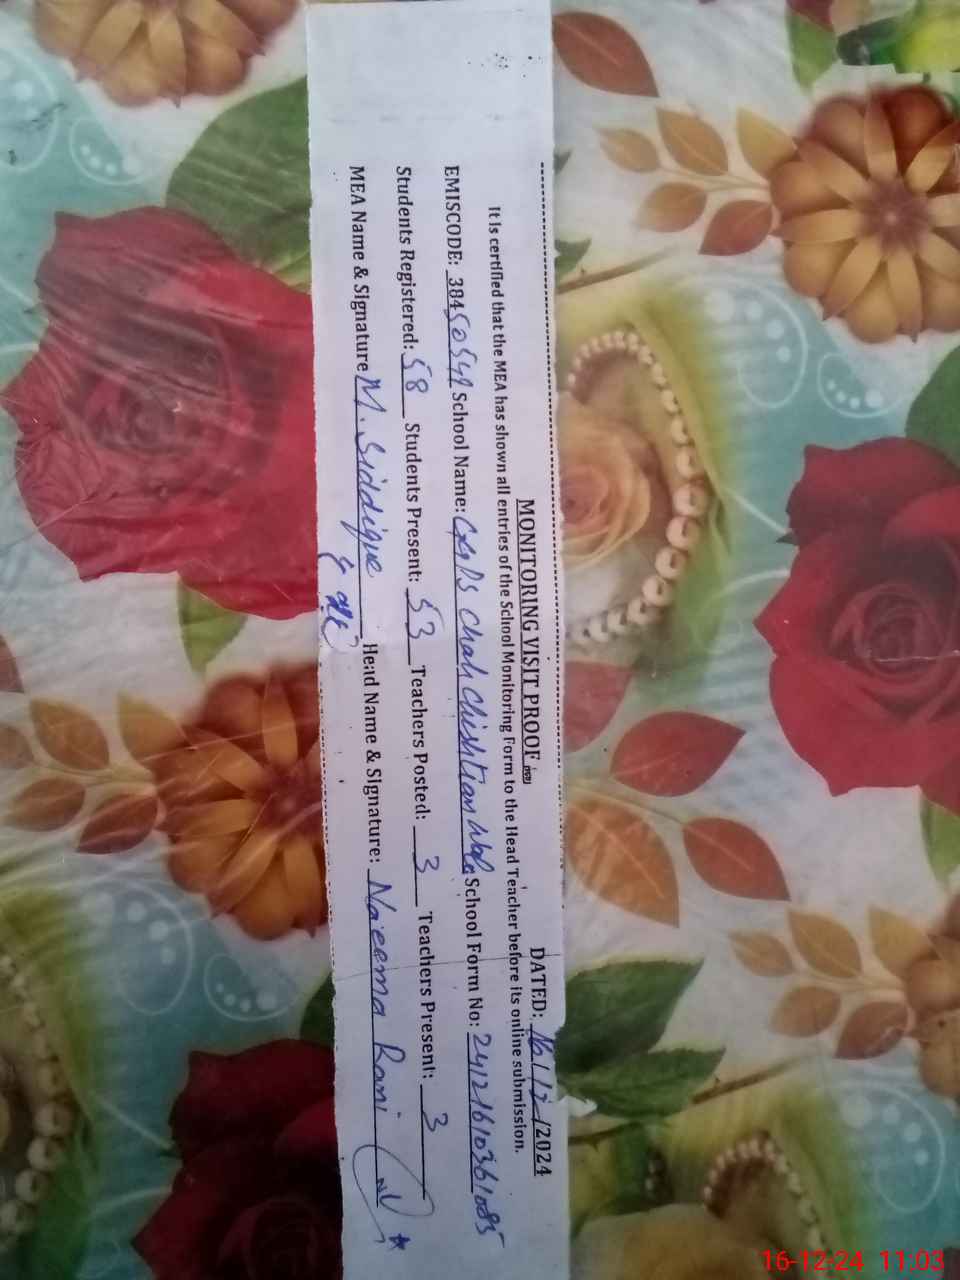 MONITORING VISIT PROOF DATED: 16/12/2024
It is certified that the MEA has shown all entries of the School Monitoring Form to the Head Teacher before its online submission.
EMISCODE: 38450541 School Name: GGPS Chah Chishtian Wala School Form No: 24121610361085
Students Registered: 58 Students Present: 53 Teachers Posted: 3 Teachers Present: 3
MEA Name & Signature M. Siddique Head Name & Signature: Naeema Rani
16-12-24 11:03